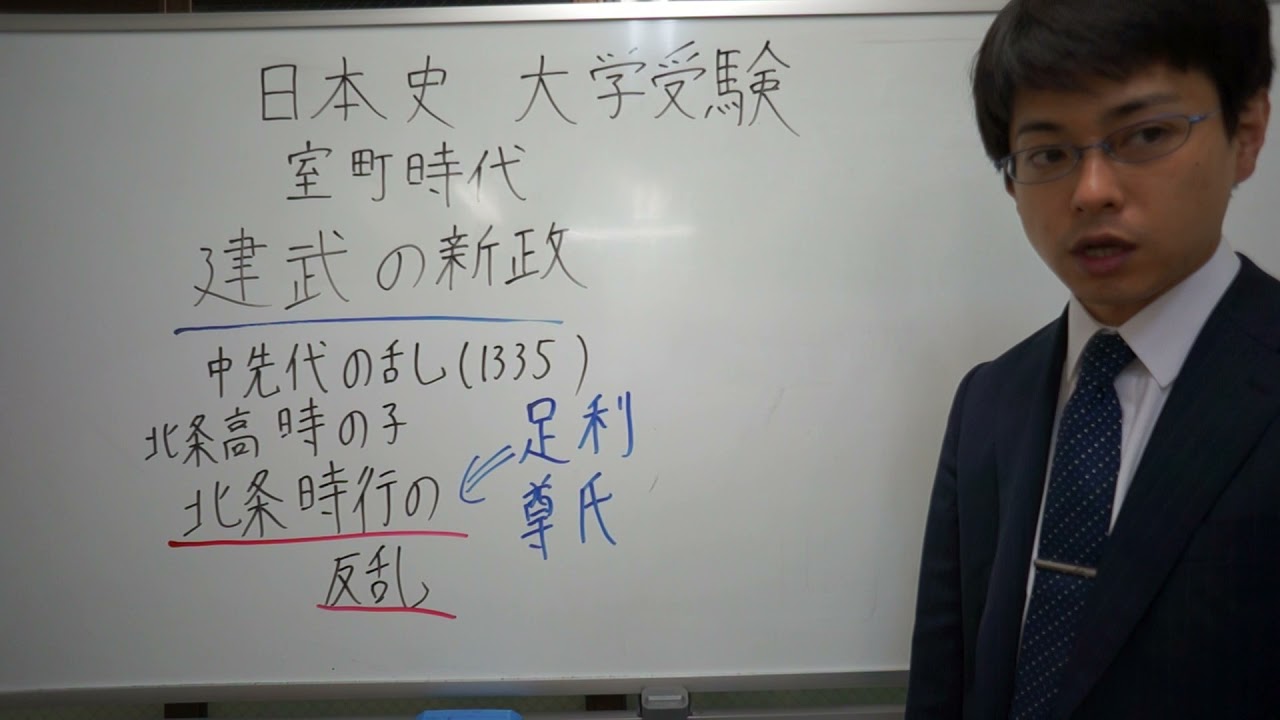 日本史 大学受験
室町時代
建武の新政
中先代の乱(1335)
北条高時の子
北条時行の
反乱
足利
尊氏